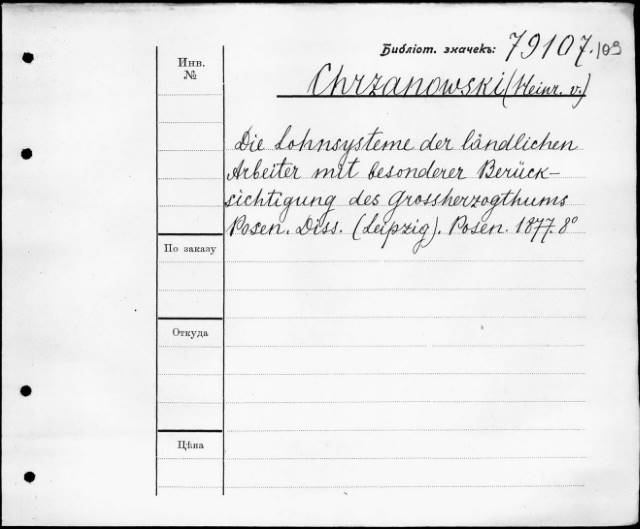 Библіот. значекъ: 79107.109
Инв. №
Chrzanowski (Heinr. v.)
Die Lohnsysteme der ländlichen
Arbeiter mit besonderer Berück-
sichtigung des Grossherzogthums
Posen. Diss. (Leipzig). Posen. 1877. 8°
По заказу
Откуда
Цѣна